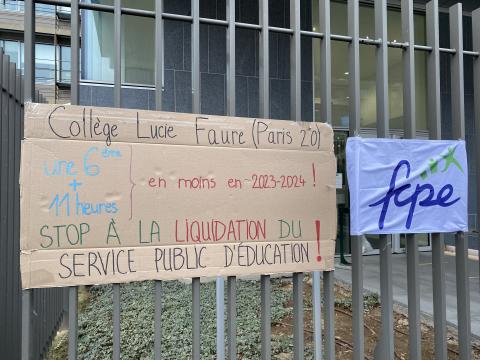 Collège Lucie Faure (Paris 20)
une 6ème
+
11 heures
en moins en 2023-2024 !
STOP À LA LIQUIDATION DU
SERVICE PUBLIC D'ÉDUCATION !
fcpe